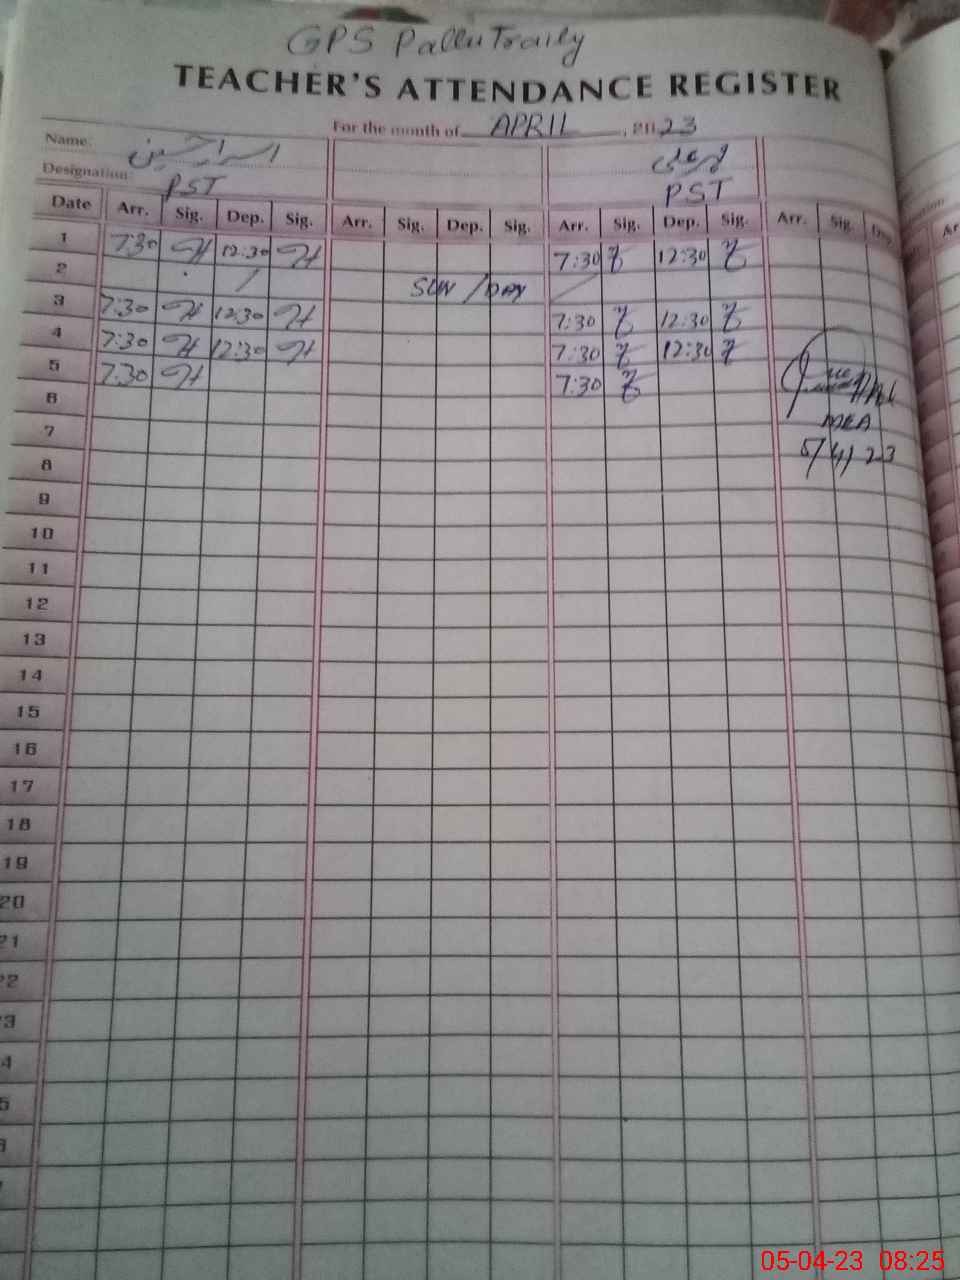 GPS Pallu Traily
TEACHER'S ATTENDANCE REGISTER
For the month of APRIL, 2023
Name:
Designation: PST PST
Date Arr. Sig. Dep. Sig. Arr. Sig. Dep. Sig. Arr. Sig. Dep. Sig. Arr. Sig. Dep.
1 7:30 12:30 7:30 12:30
2 SUN/DAY
3 7:30 12:30 7:30 12:30
4 7:30 12:30 7:30 12:30
5 7:30 7:30
6
7 MEA
8 5/4/23
9
10
11
12
13
14
15
16
17
18
19
20
21
22
3
4
5
05-04-23 08:25